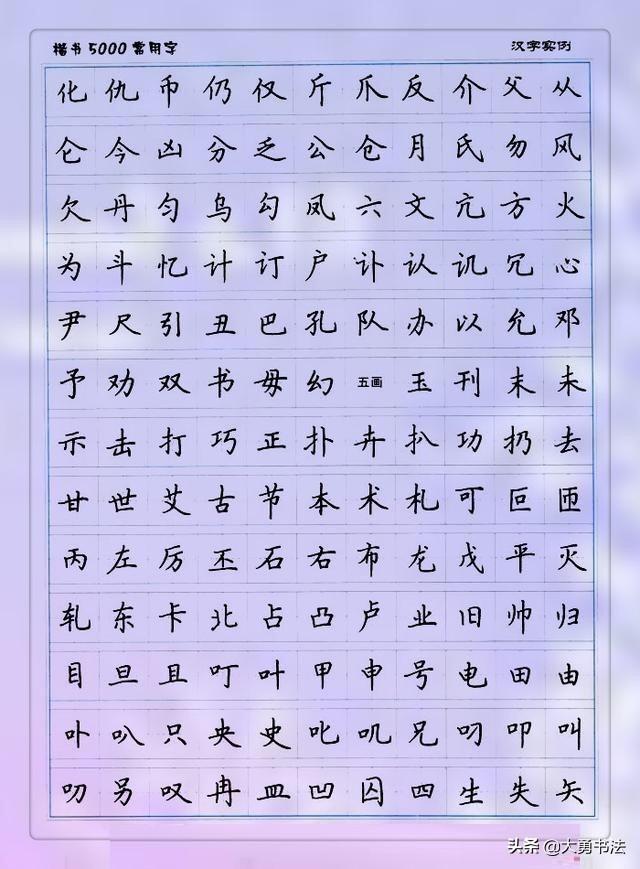 楷书5000常用字 汉字实例
化仇币仍仅斤爪反介父从
仑今凶分乏公仓月氏勿风
欠丹匀乌勾凤六文亢方火
为斗忆计订户讣认讥冗心
尹尺引丑巴孔队办以允邓
予劝双书毋幻五画玉刊末未
示击打巧正扑卉扒功扔去
甘世艾古节本术札可叵匝
丙左厉丕石右布龙戊平灭
轧东卡北占凸卢业旧帅归
目旦且叮叶甲申号电田由
卟叭只央史叱叽兄叼叩叫
叨另叹冉皿凹囚四生失矢
头条 @大勇书法